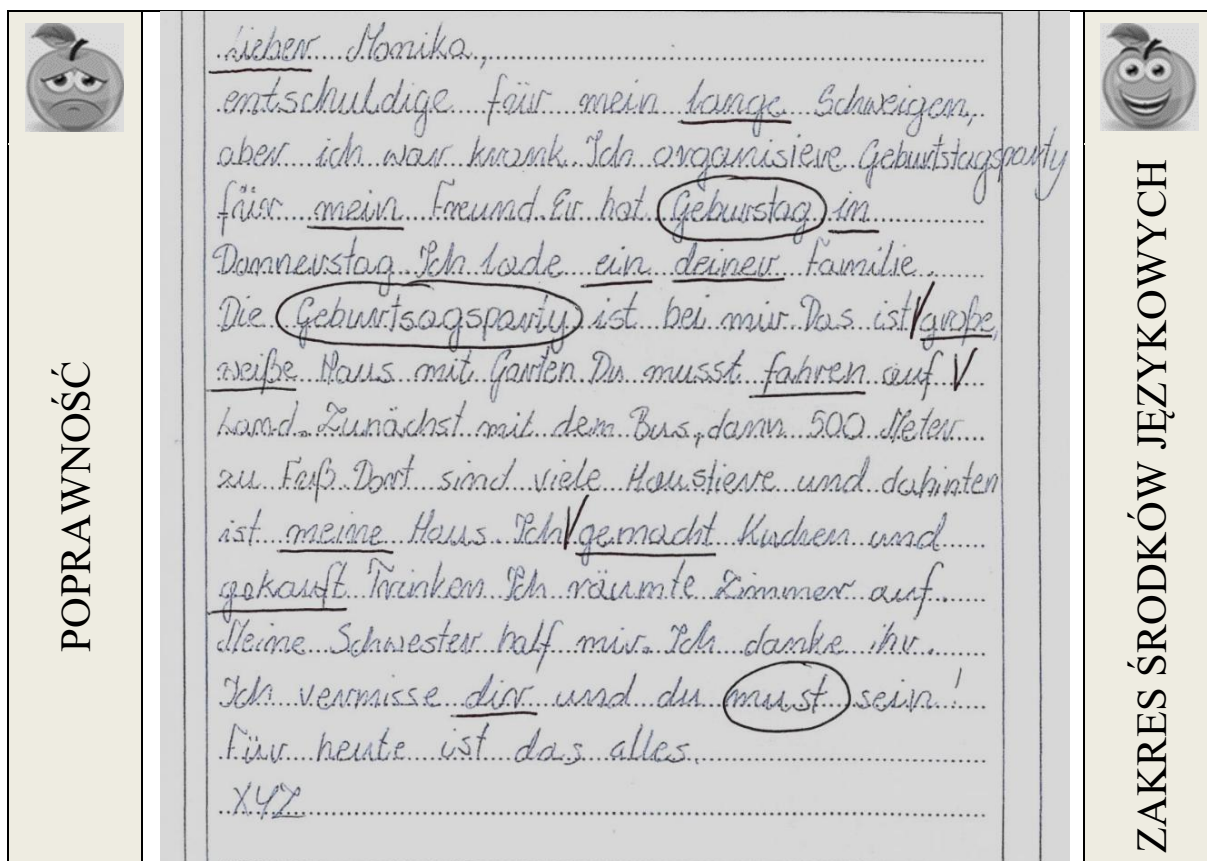 POPRAWNOŚĆ
Lieber Monika,
entschuldige für mein lange Schweigen,
aber ich war krank. Ich organisiere Geburtstagsparty
für mein Freund. Er hat Geburstag im
Donnerstag. Ich lade ein deiner Familie.
Die Geburtsagsparty ist bei mir. Das ist große,
weiße Haus mit Garten. Du musst fahren auf
Land. Zunächst mit dem Bus, dann 500 Meter
zu Fuß. Dort sind viele Haustiere und dahinten
ist meine Haus. Ich gemacht Kuchen und
gekauft Trinken. Ich räumte Zimmer auf.
Meine Schwester half mir. Ich danke ihr.
Ich vermisse dir und du must sein!
Für heute ist das alles.
XYZ
ZAKRES ŚRODKÓW JĘZYKOWYCH